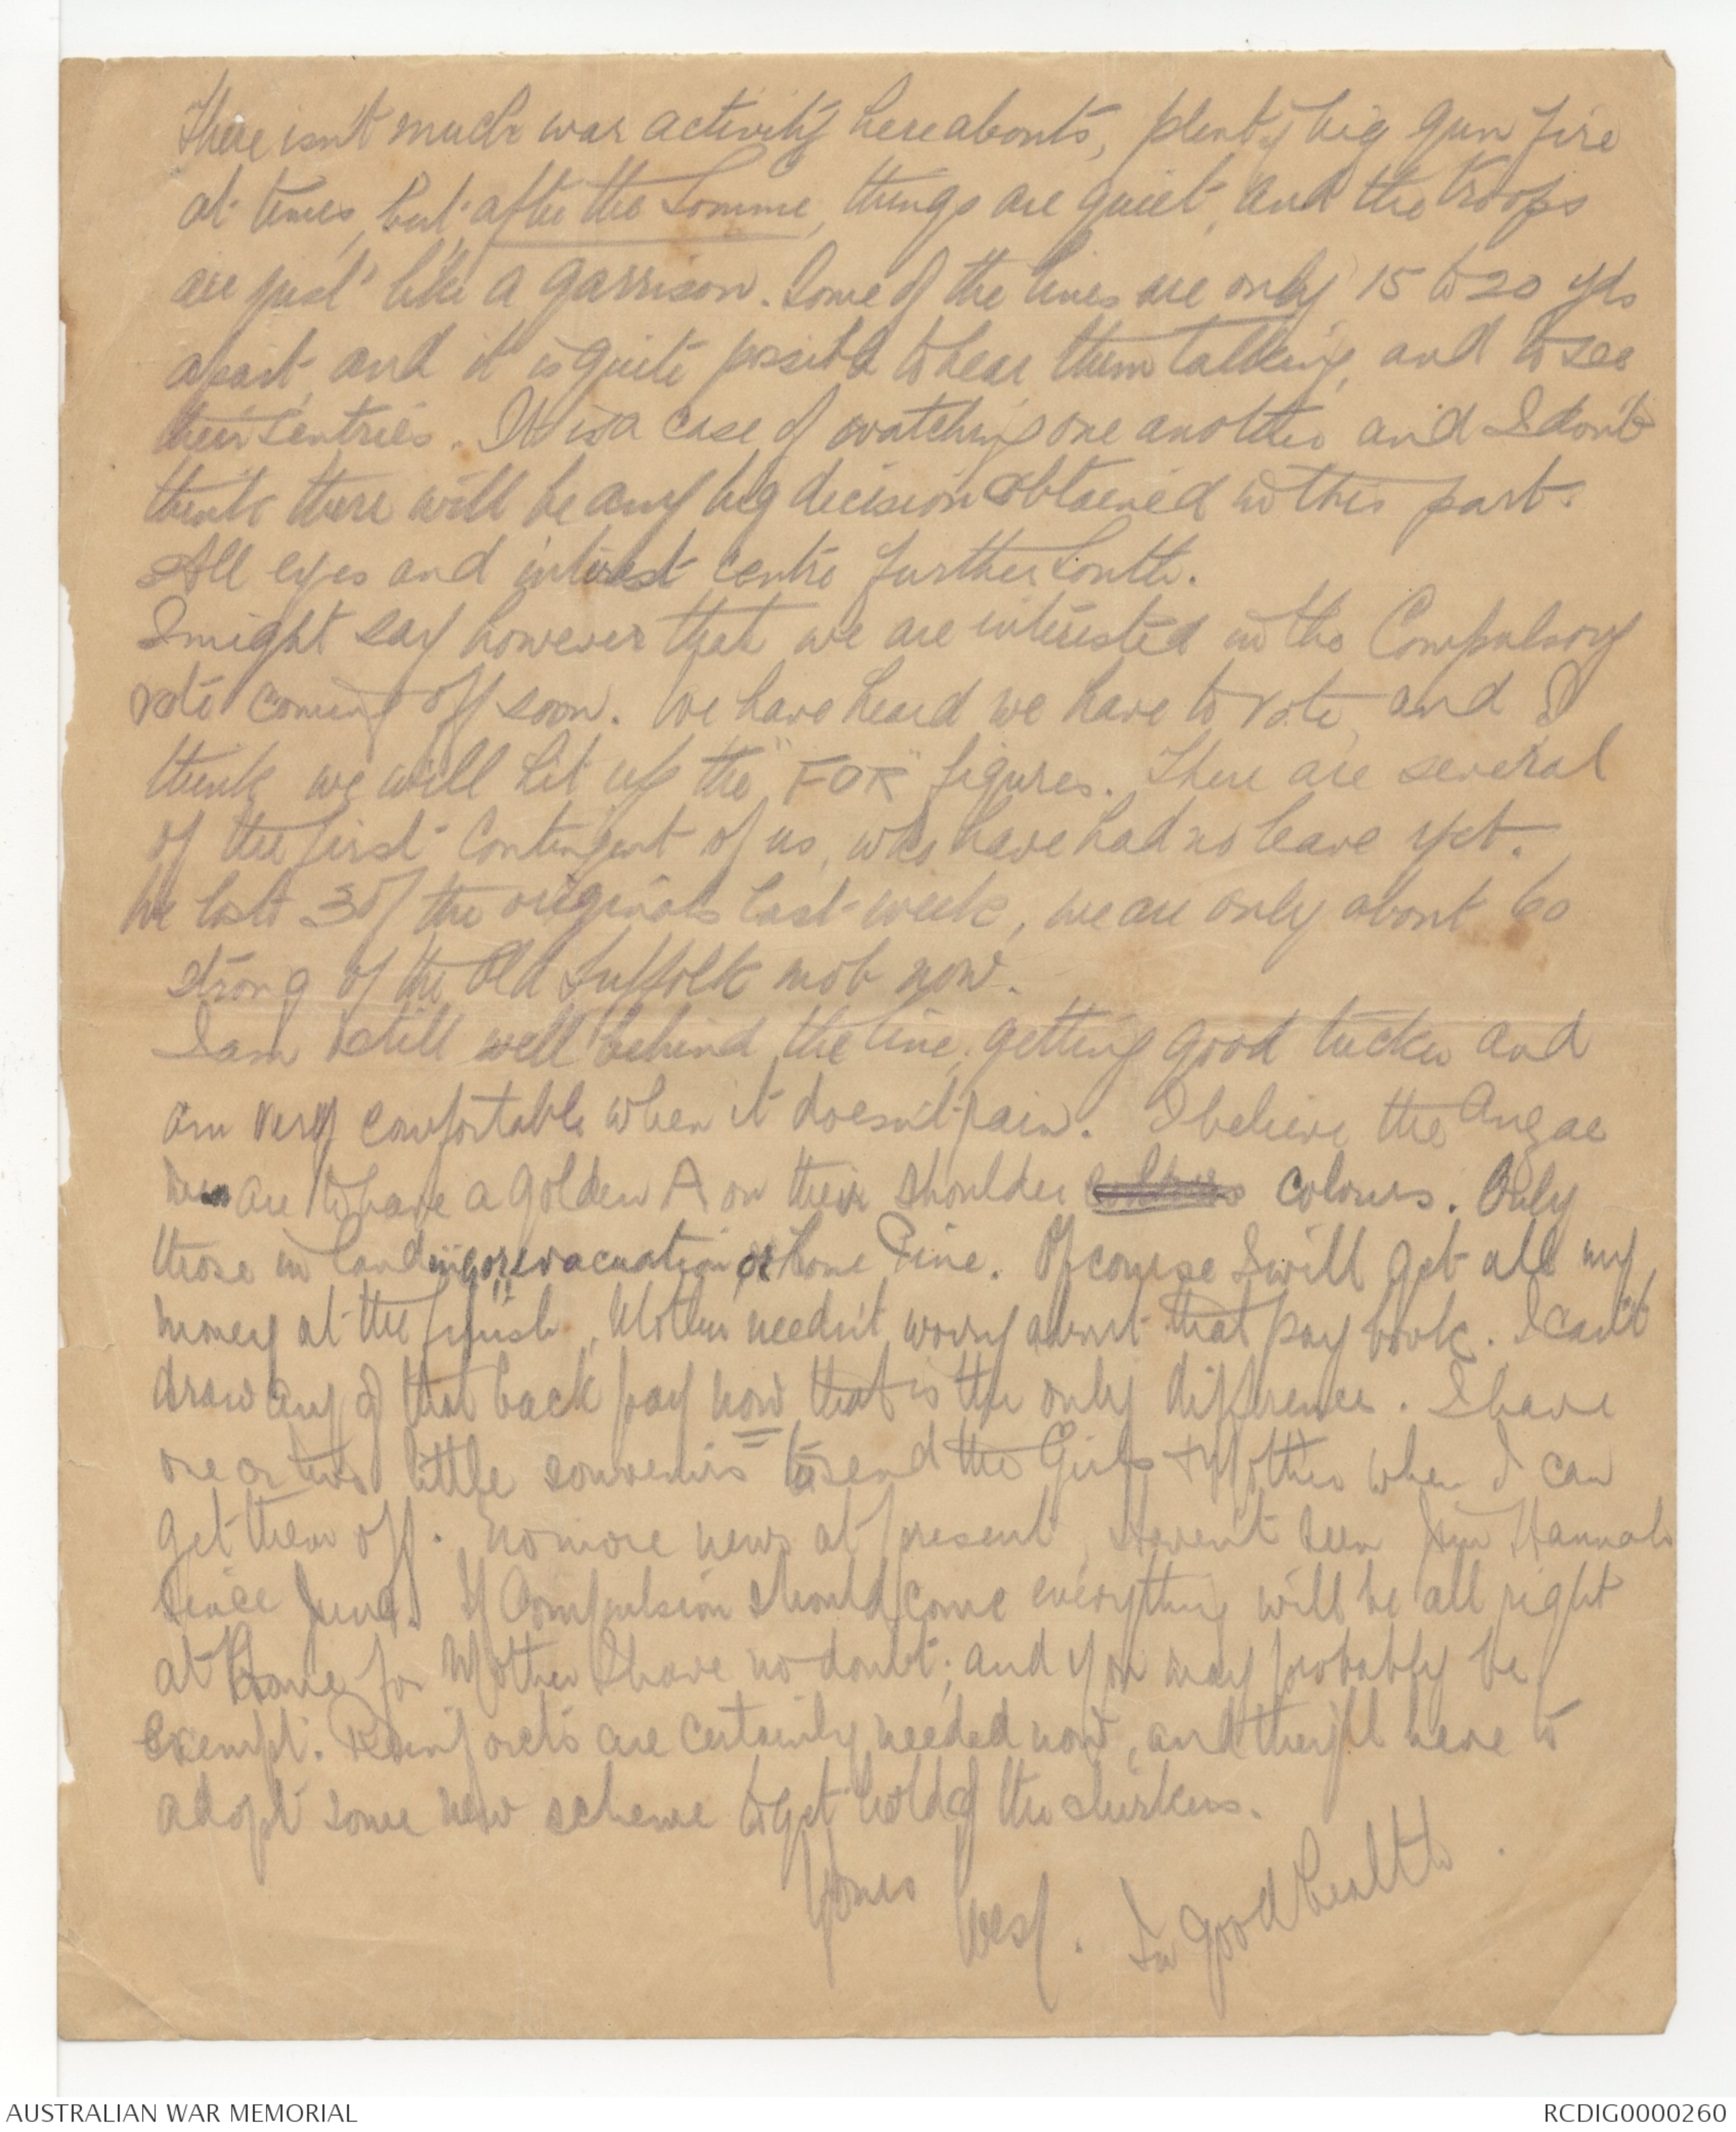 There isn't much war activity hereabouts, plenty big gun fire
at times, but after the Somme, things are quiet, and the troops
are just like a garrison. Some of the lines are only 15 to 20 yds
apart, and it is quite possible to hear them talking, and to see
their sentries. It is a case of watching one another and I don't
think there will be any big decision obtained in this part.
All eyes and interest centre further South.
I might say however that we are interested in the Compulsory
vote coming off soon. We have heard we have to vote, and I
think we will hit up the "FOR" figures. There are several
of the first Contingent of us, who have had no leave yet.
We lost 3 of the originals last week, we are only about 60
strong of the Old Suffolk mob now.
I am still well behind the line, getting good tucker and
am very comfortable when it doesn't rain. I believe the Anzac
men are to have a golden A on their shoulder colours. Only
those in landing or evacuation or Lone Pine. Of course I will get all my
money at the finish, Mother needn't worry about that pay book. I can't
draw any of that back pay now that is the only difference. I have
one or two little souvenirs to send the Girls + Mother when I can
get them off. No more news at present, Haven't seen Jim Hannah
since June. If Compulsion should come everything will be all right
at Home for Mother I have no doubt; and you may probably be
exempt. Reinforcts are certainly needed now, and they'll have to
adopt some new scheme to get hold of the shirkers.
Yours
Wesl. In good health.
AUSTRALIAN WAR MEMORIAL
RCDIG0000260